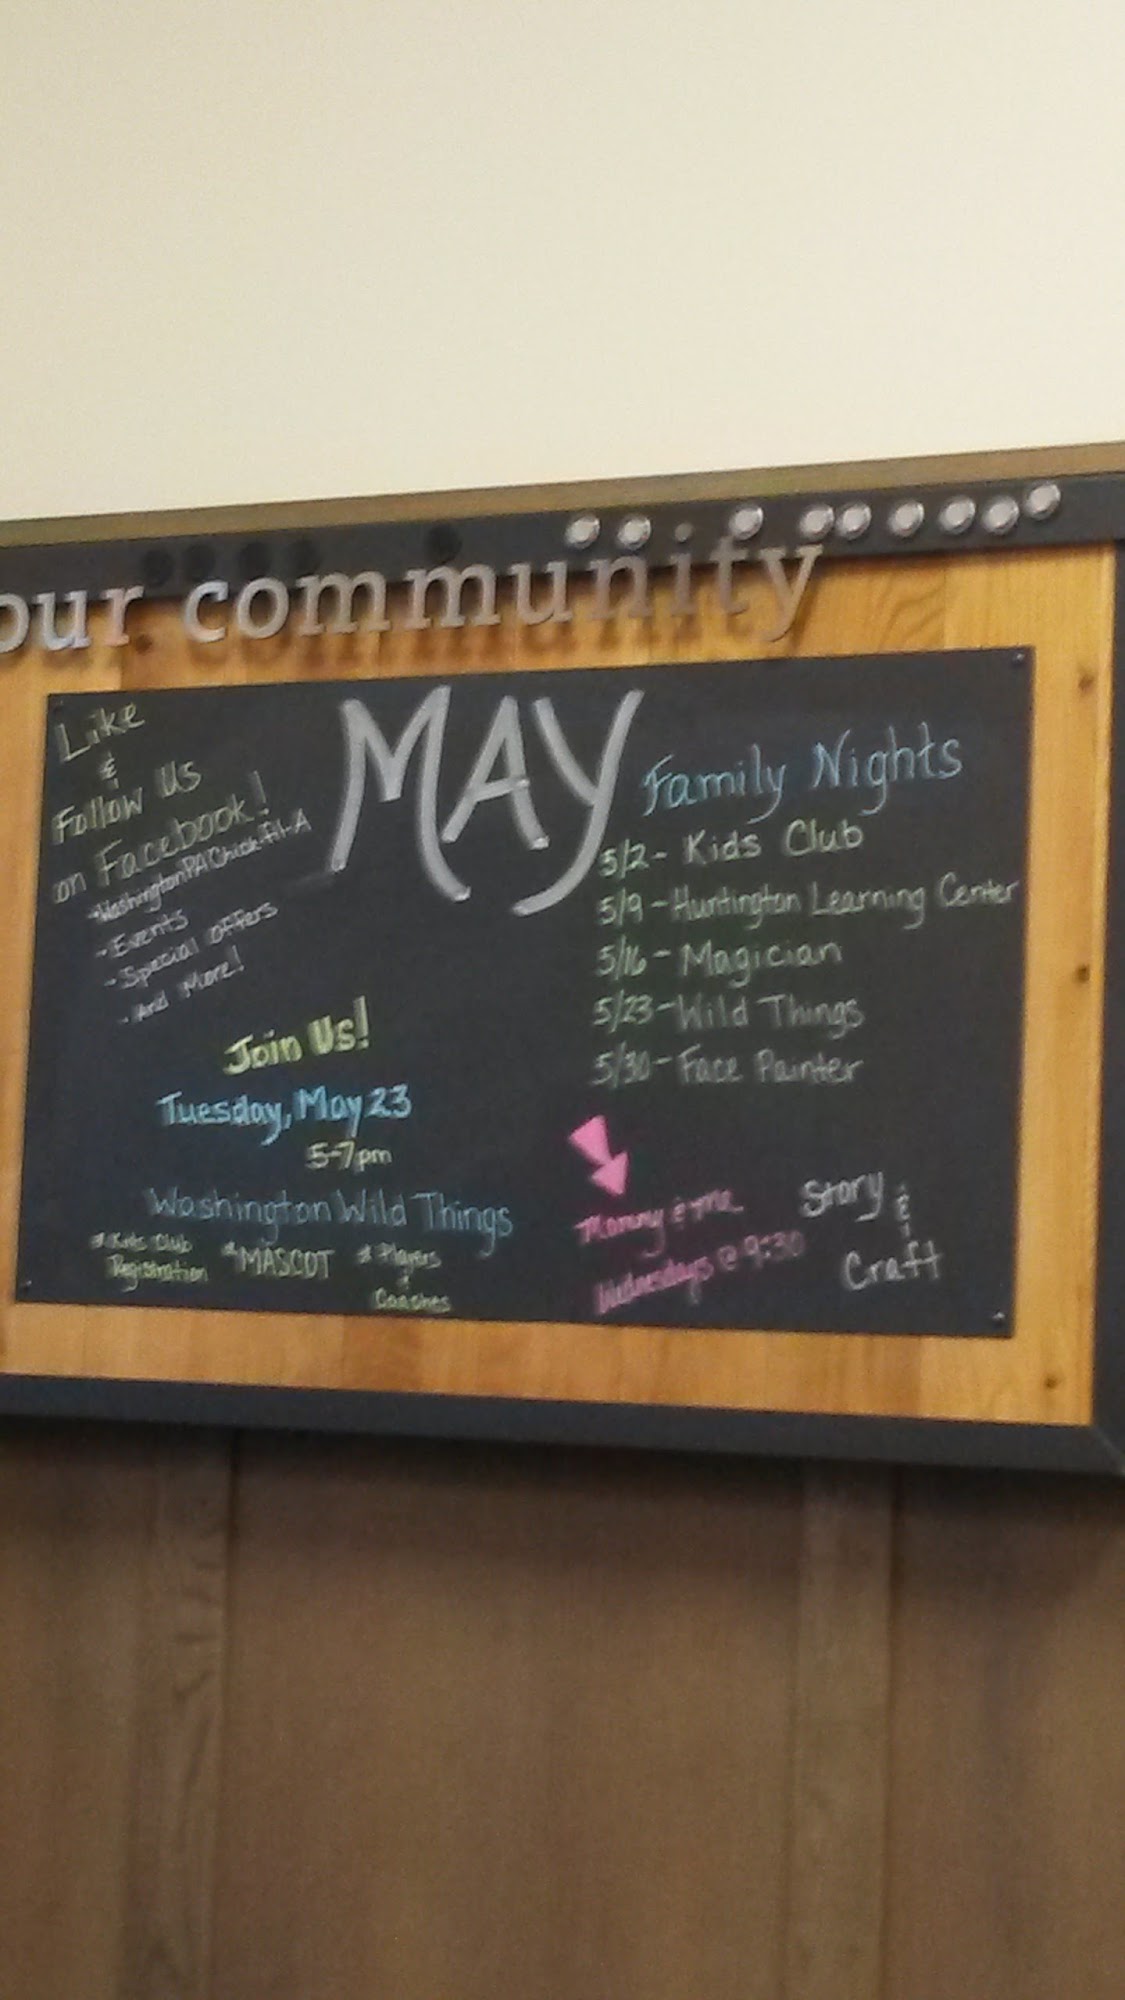 our community
MAY
Like
&
Follow Us
on Facebook!
-WashingtonPAChick-fil-A
- Events
- Special offers
- And More!
Join Us!
Tuesday, May 23
5-7pm
Washington Wild Things
* Kids Club
Registration
* MASCOT
* Players
&
Coaches
Family Nights
5/2- Kids Club
5/9 - Huntington Learning Center
5/16 - Magician
5/23 - Wild Things
5/30 - Face Painter
Mommy & me
Wednesdays @ 9:30
Story
&
Craft